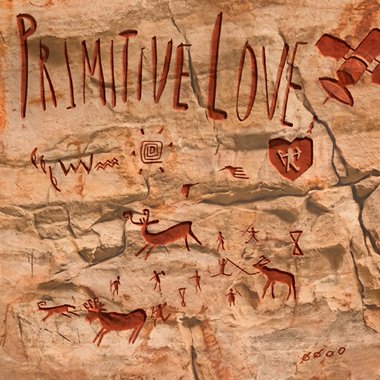 PRIMITIVE LOVE